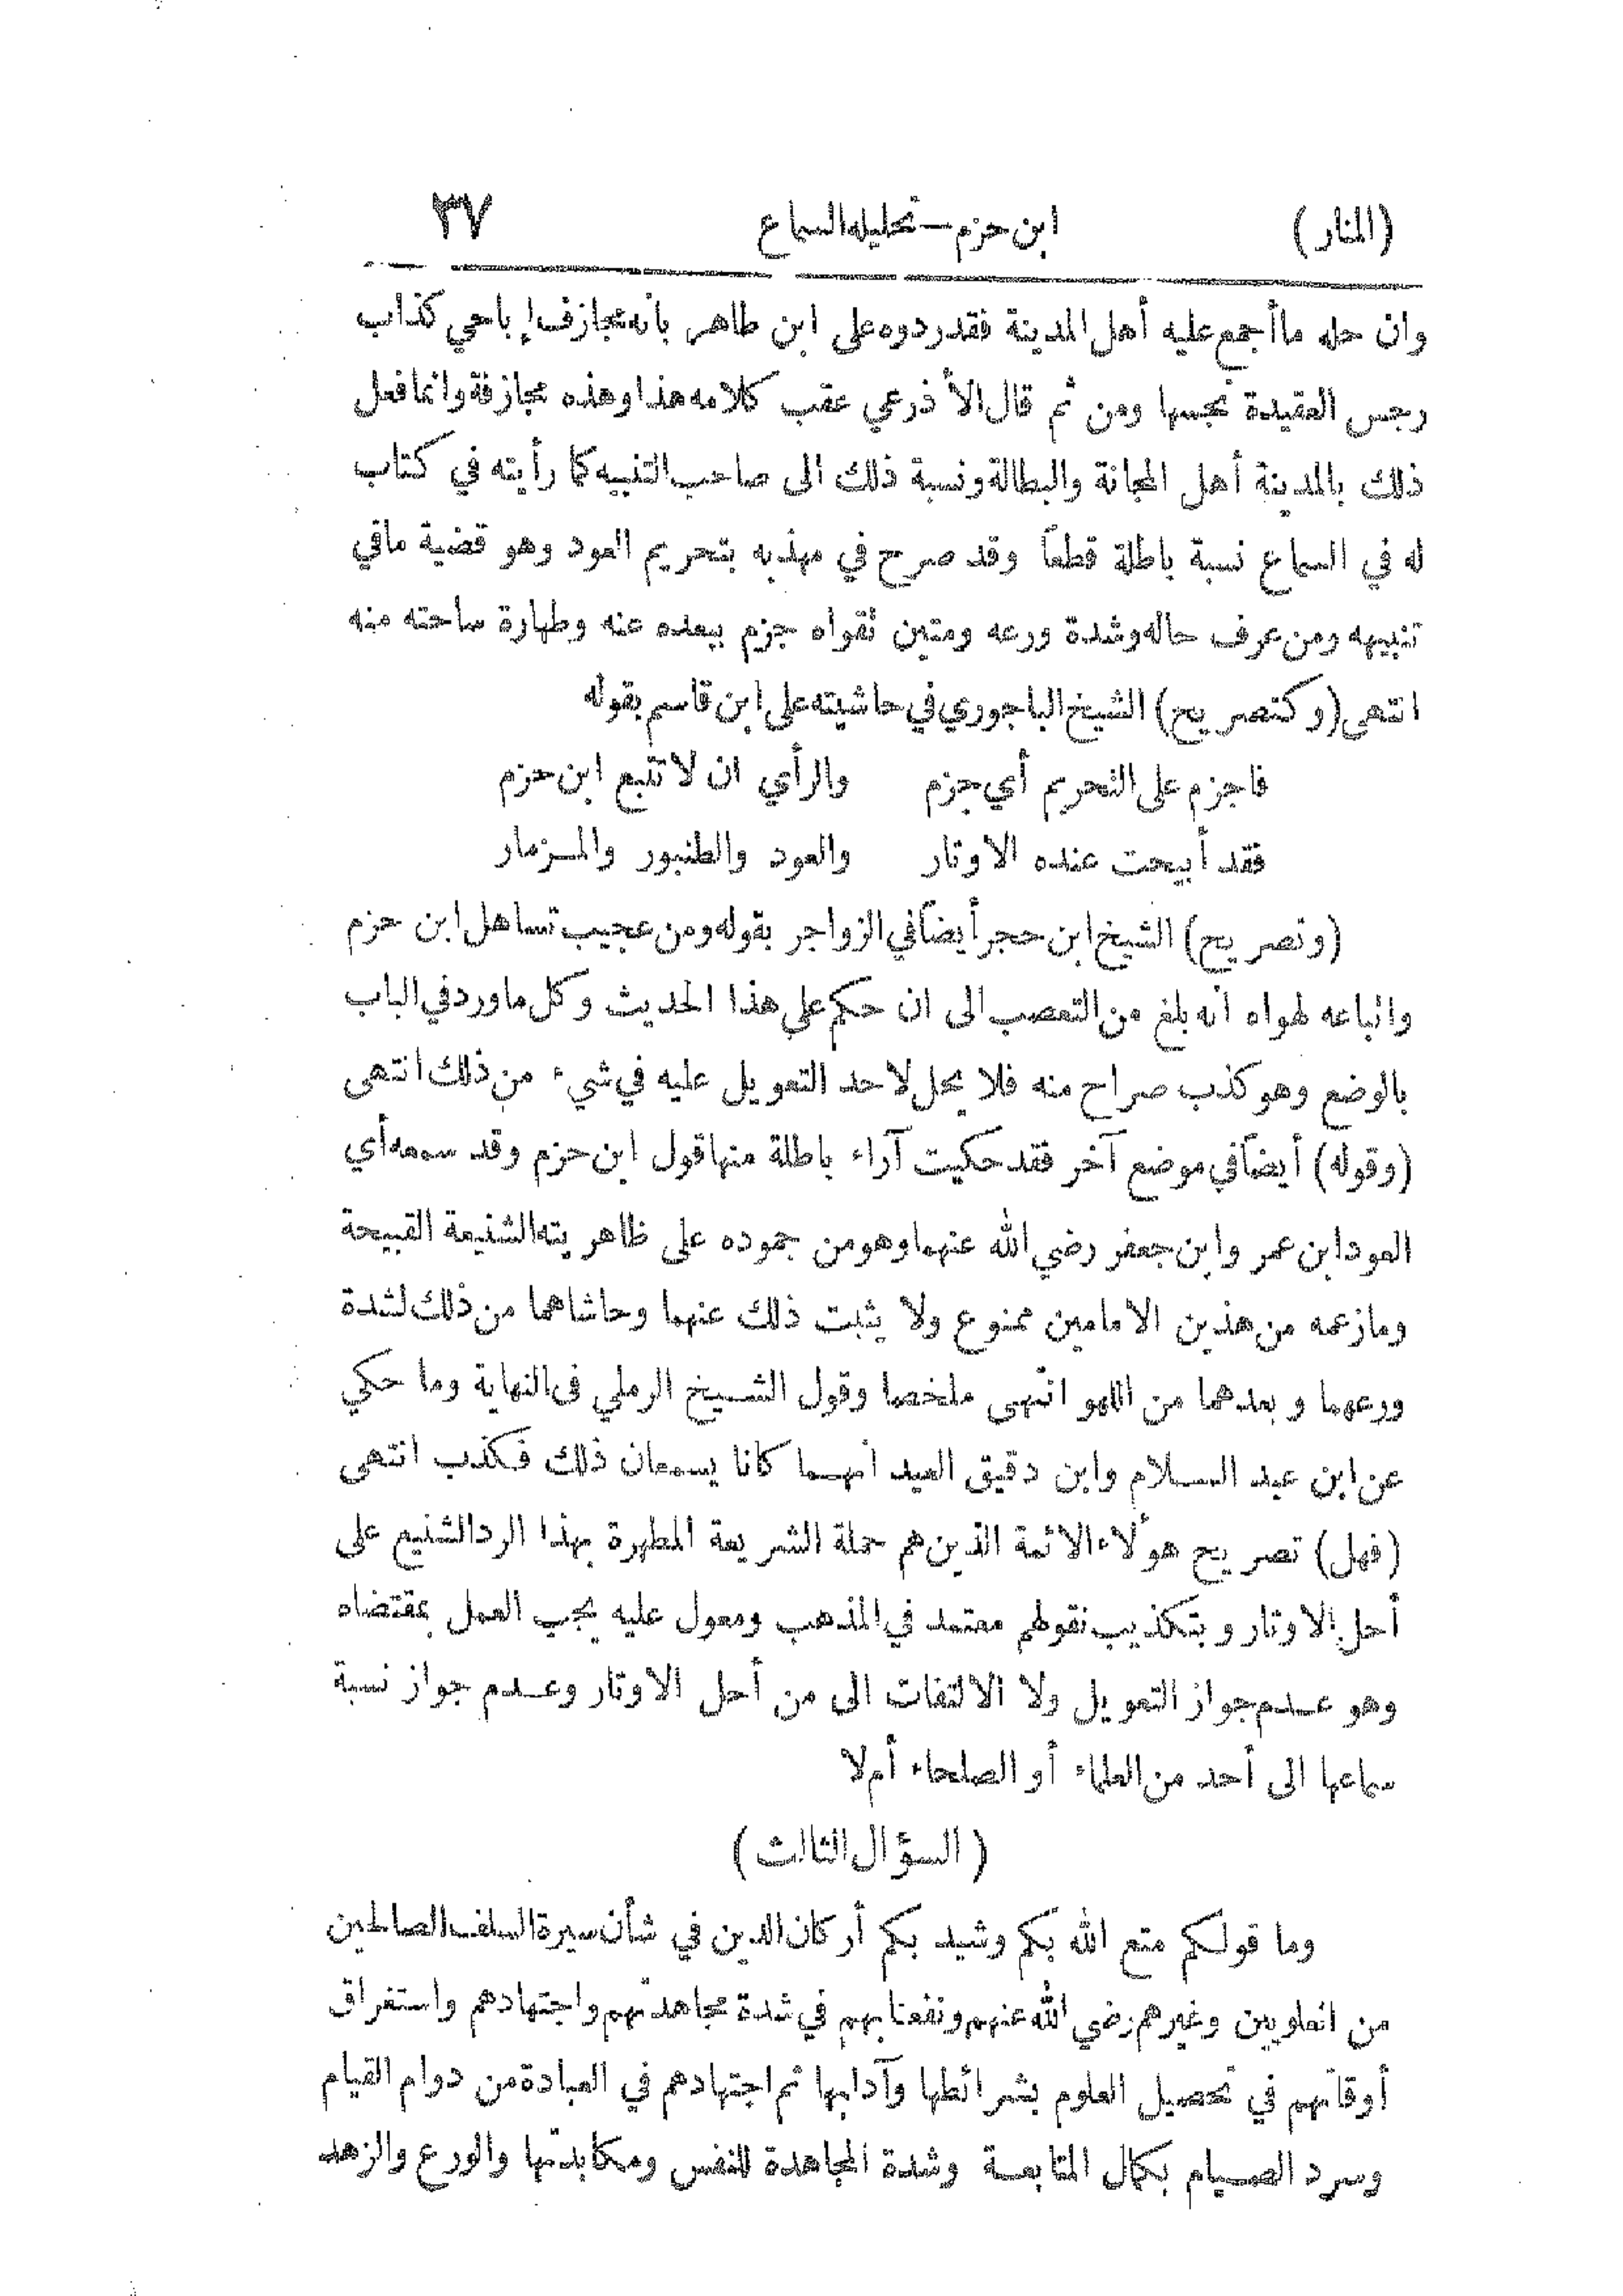 (المنار) ابن حزم — تحليله السماع ٣٧
وان حله ما أجمع عليه أهل المدينة فقد ردوه على ابن طاهر بأنه مجازف إباحي كذاب
رجس العقيدة نجسها ومن ثم قال الأذرعي عقب كلامه هذا وهذه مجازفة وانما فعل
ذلك بالمدينة أهل المجانة والبطالة ونسبة ذلك الى صاحب التنبيه كما رأيته في كتاب
له في السماع نسبة باطلة قطعاً وقد صرح في مهذبه بتحريم العود وهو قضية مافي
تنبيهه ومن عرف حاله وشدة ورعه ومتين تقواه جزم ببعده عنه وطهارة ساحته منه
انتهى (وكتصريح) الشيخ الباجوري في حاشيته على ابن قاسم بقوله
فاجزم على التحريم أي جزم والرأي ان لا تتبع ابن حزم
فقد أبيحت عنده الاوتار والعود والطنبور والمزمار
(وتصريح) الشيخ ابن حجر أيضاً في الزواجر بقوله ومن عجيب تساهل ابن حزم
واتباعه لهواه انه بلغ من التعصب الى ان حكم على هذا الحديث وكل ماورد في الباب
بالوضع وهو كذب صراح منه فلا يحل لاحد التعويل عليه في شيء من ذلك انتهى
(وقوله) أيضاً في موضع آخر فقد حكيت آراء باطلة منها قول ابن حزم وقد سمعه أي
العود ابن عمر وابن جعفر رضي الله عنهما وهو من جموده على ظاهريته الشنيعة القبيحة
ومازعمه من هذين الامامين ممنوع ولا يثبت ذلك عنهما وحاشاهما من ذلك لشدة
ورعهما وبعدهما من اللهو انتهى ملخصا وقول الشيخ الرملي فى النهاية وما حكي
عن ابن عبد السلام وابن دقيق العيد انهما كانا يسمعان ذلك فكذب انتهى
(فهل) تصريح هؤلاء الائمة الذين هم حملة الشريعة المطهرة بهذا الرد الشنيع على
أحل الاوتار وبتكذيب نقولهم معتمد في المذهب ومعول عليه يجب العمل بمقتضاه
وهو عدم جواز التعويل ولا الالتفات الى من أحل الاوتار وعدم جواز نسبة
سماعها الى أحد من العلماء أو الصلحاء أم لا
(السؤال الثالث)
وما قولكم متع الله بكم وشيد بكم أركان الدين في شأن سيرة السلف الصالحين
من العلويين وغيرهم رضي الله عنهم ونفعنا بهم في شدة مجاهدتهم واجتهادهم واستغراق
أوقاتهم في تحصيل العلوم بشرائطها وآدابها ثم اجتهادهم في العبادة من دوام القيام
وسرد الصيام بكمال المتابعة وشدة المجاهدة للنفس ومكابدتها والورع والزهد